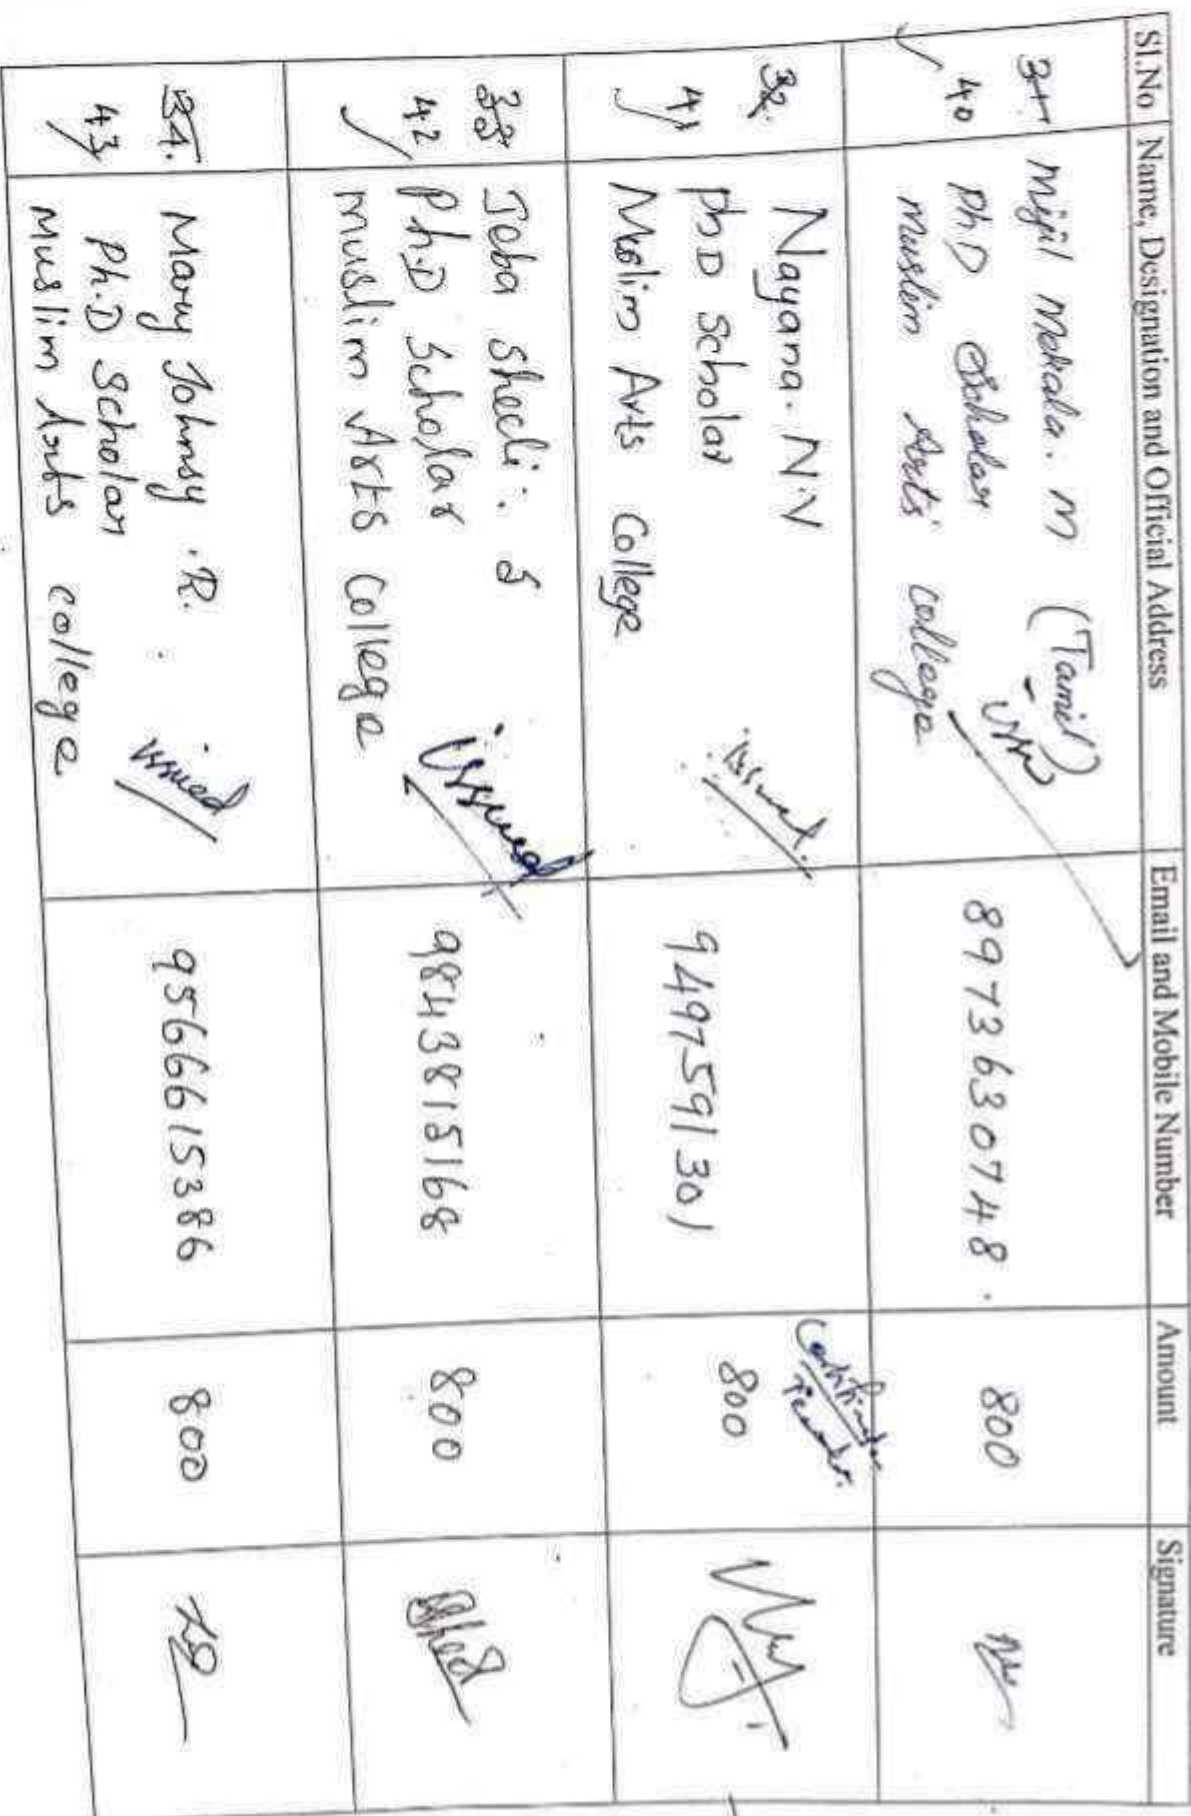 Sl.No Name, Designation and Official Address Email and Mobile Number Amount Signature
31 Mijil Mekala. M (Tamil)
40 Ph D Scholar
Muslim Arts College
8973630748.
800
32. Nayana. N.V
41 PhD Scholar
Muslim Arts College
issued.
9497591301
800
33 Jeba Sheeli. S
42 Ph.D Scholar
Muslim Arts College
issued
9843815168
800
34. Mary Johnsy .R.
43 Ph.D Scholar
Muslim Arts college
issued
9566615386
800